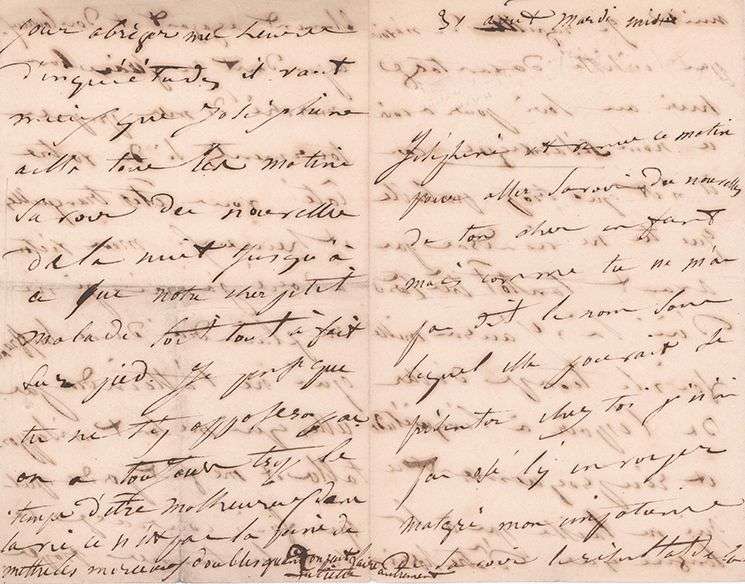 31 août mardi midi
Joséphine est venue ce matin
pour aller savoir des nouvelles
de ton cher enfant
mais comme tu ne m'as
pas dit le nom sous
lequel elle pourait se
présenter chez toi je n'ai
pas osé l'y envoyer
malgré mon impatience
de savoir le résultat de la
pour abréger mes heures
d'inquiétudes, il vaut
mieux que Joséphine
aille tous les matins
savoir des nouvelles
de la nuit jusqu'à
ce que notre cher petit
malade soit tout à fait
sur pied. Je pense que
tu ne t'y opposeras pas
on a toujours trop le
temps d'être malheureux dans
la vie ce n'est pas la peine de
mettre les morceaux doubles quand on peut faire
autrement
Juliette